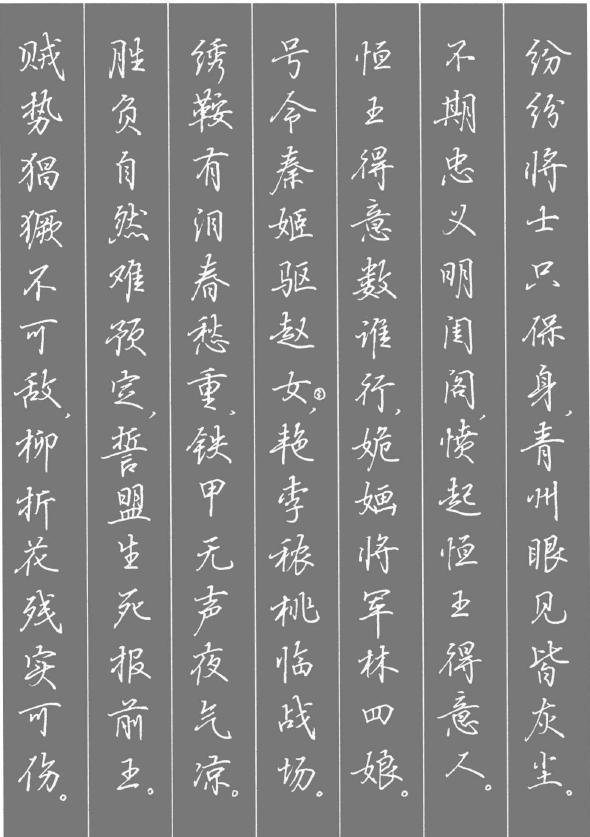 纷纷将士只保身，青州眼见皆灰尘。
不期忠义明闺阁，愤起恒王得意人。
恒王得意数谁行，姽婳将军林四娘。
号令秦姬驱赵女，②艳李秾桃临战场。
绣鞍有泪春愁重，铁甲无声夜气凉。
胜负自然难预定，誓盟生死报前王。
贼势猖獗不可敌，柳折花残实可伤。